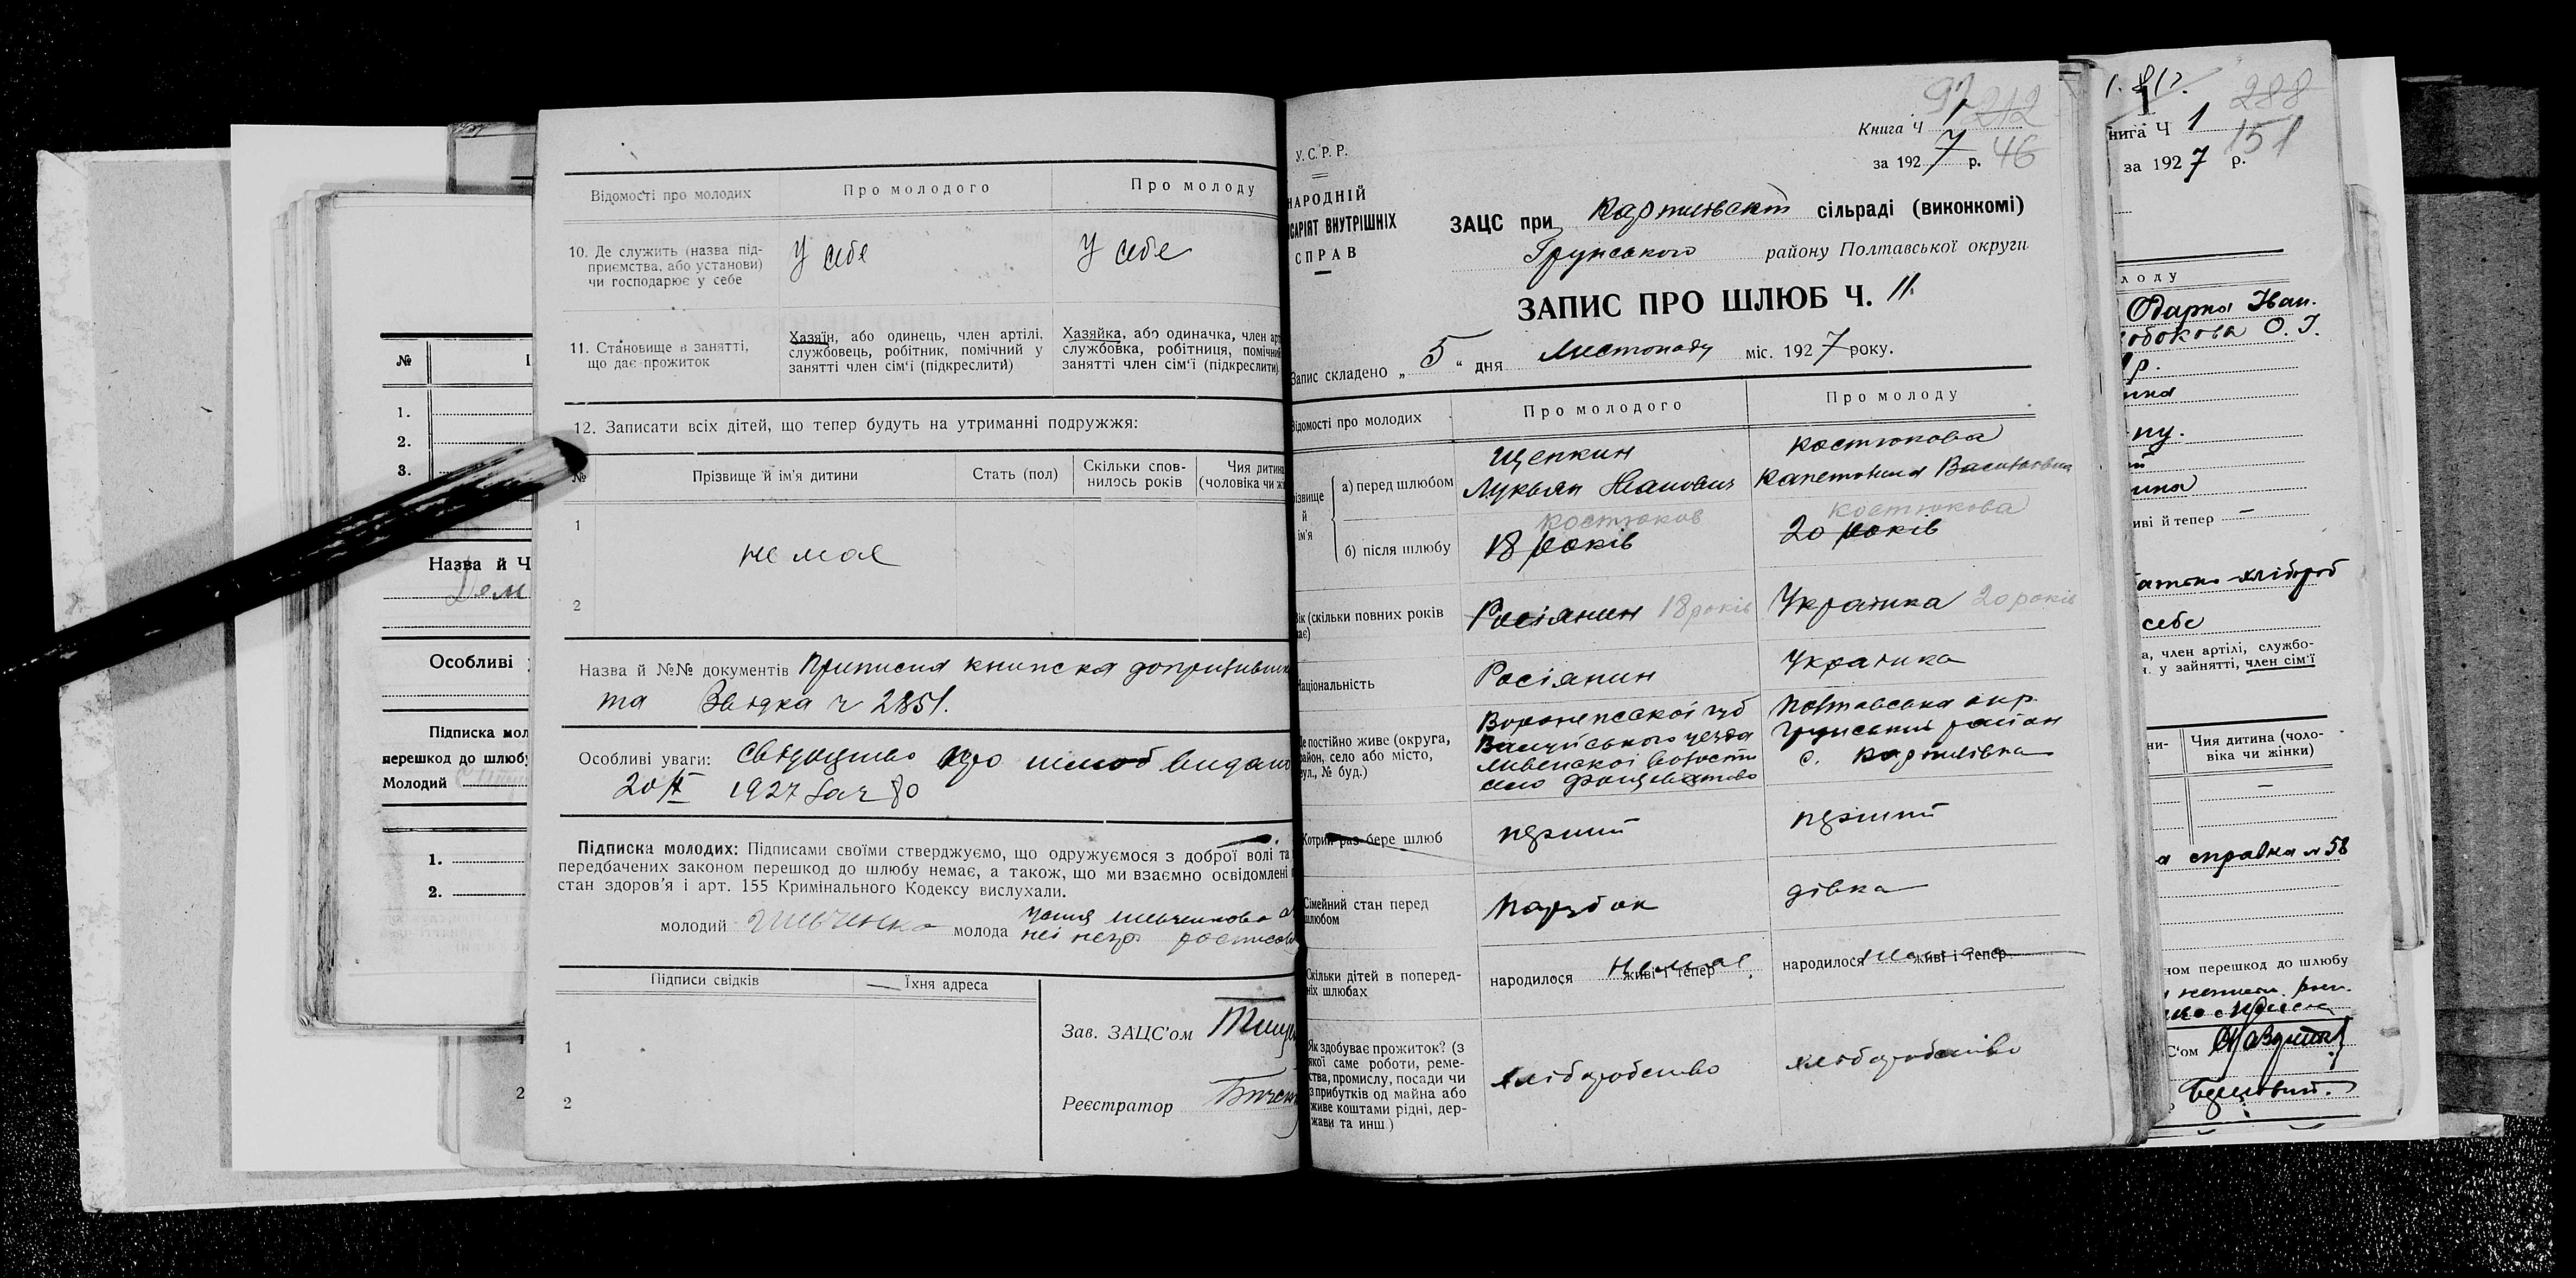 Відомості про молодих
Про молодого
Про молоду
10. Де служить (назва під-
приємства, або установи)
чи господарює у себе
У себе
У себе
11. Становище в занятті,
що дає прожиток
Хазяїн, або одинець, член артілі,
службовець, робітник, помічний у
занятті член сім'ї (підкреслити)
Хазяйка, або одиначка, член арт
службовка, робітниця, помічний
занятті член сім'ї (підкреслити)
12. Записати всіх дітей, що тепер будуть на утриманні подружжя:
№
Прізвище й ім'я дитини
Стать (пол)
Скільки спов-
нилось років
Чия дитина
(чоловіка чи жі
1
не має
2
Назва й №№ документів Приписна книжка
та Звідка ч 2851.
Особливі уваги: Свідоцтво про шлюб видано
20/X 1927 за ч 80
Підписка молодих: Підписами своїми стверджуємо, що одружуємося з доброї волі та
передбачених законом перешкод до шлюбу немає, а також, що ми взаємно освідомлені
стан здоров'я і арт. 155 Кримінального Кодексу вислухали.
молодий
молода
Підписи свідків
Їхня адреса
1
2
Зав. ЗАЦС'ом
Реєстратор
№
1.
2.
3.
Назва й Ч
Особливі
Підписка мол
перешкод до шлюбу
Молодий
1.
2.
У.С.Р.Р.
НАРОДНІЙ
САРІЯТ ВНУТРІШНІХ
СПРАВ
Книга Ч 1
за 1927 р. 46
ЗАЦС при сільраді (виконкомі)
Грунського району Полтавської округи
ЗАПИС ПРО ШЛЮБ Ч. 11.
Запис складено „ 5 “ дня Листопаду міс. 1927 року.
Відомості про молодих
Про молодого
Про молоду
різвище
й
ім'я
а) перед шлюбом
Щепкин
Лукьян Иванович
Костюкова
Капетолина Василовна
б) після шлюбу
Костюков
18 років
Костюкова
20 років
Вік (скільки повних років
має)
Росіянин 18 років
Українка 20 років
Національність
Росіянин
Українка
Де постійно живе (округа,
район, село або місто,
вул., № буд.)
Воронежської губ
Валуйського уезда
Ливенської волости
село
Полтавська окр
Грунський район
с. Карпилівка
Котрий раз бере шлюб
перший
перший
Сімейний стан перед
шлюбом
Парубок
дівка
Скільки дітей в поперед-
ніх шлюбах
народилося Немає живі і тепер
народилося живі і тепер
Як здобуває прожиток? (з
якої саме роботи, реме-
ства, промислу, посади чи
з прибутків од майна або
живе коштами рідні, дер-
жави та инш.)
хліборобство
хліборобство
288
нига Ч 1
151
за 1927 р.
лоду
Одарка Іван.
О. І.
иві й тепер —
себе
а, член артілі, службо-
н. у зайнятті, член сім'ї
Чия дитина (чоло-
віка чи жінки)
—
справка № 58
ном перешкод до шлюбу
С'ом